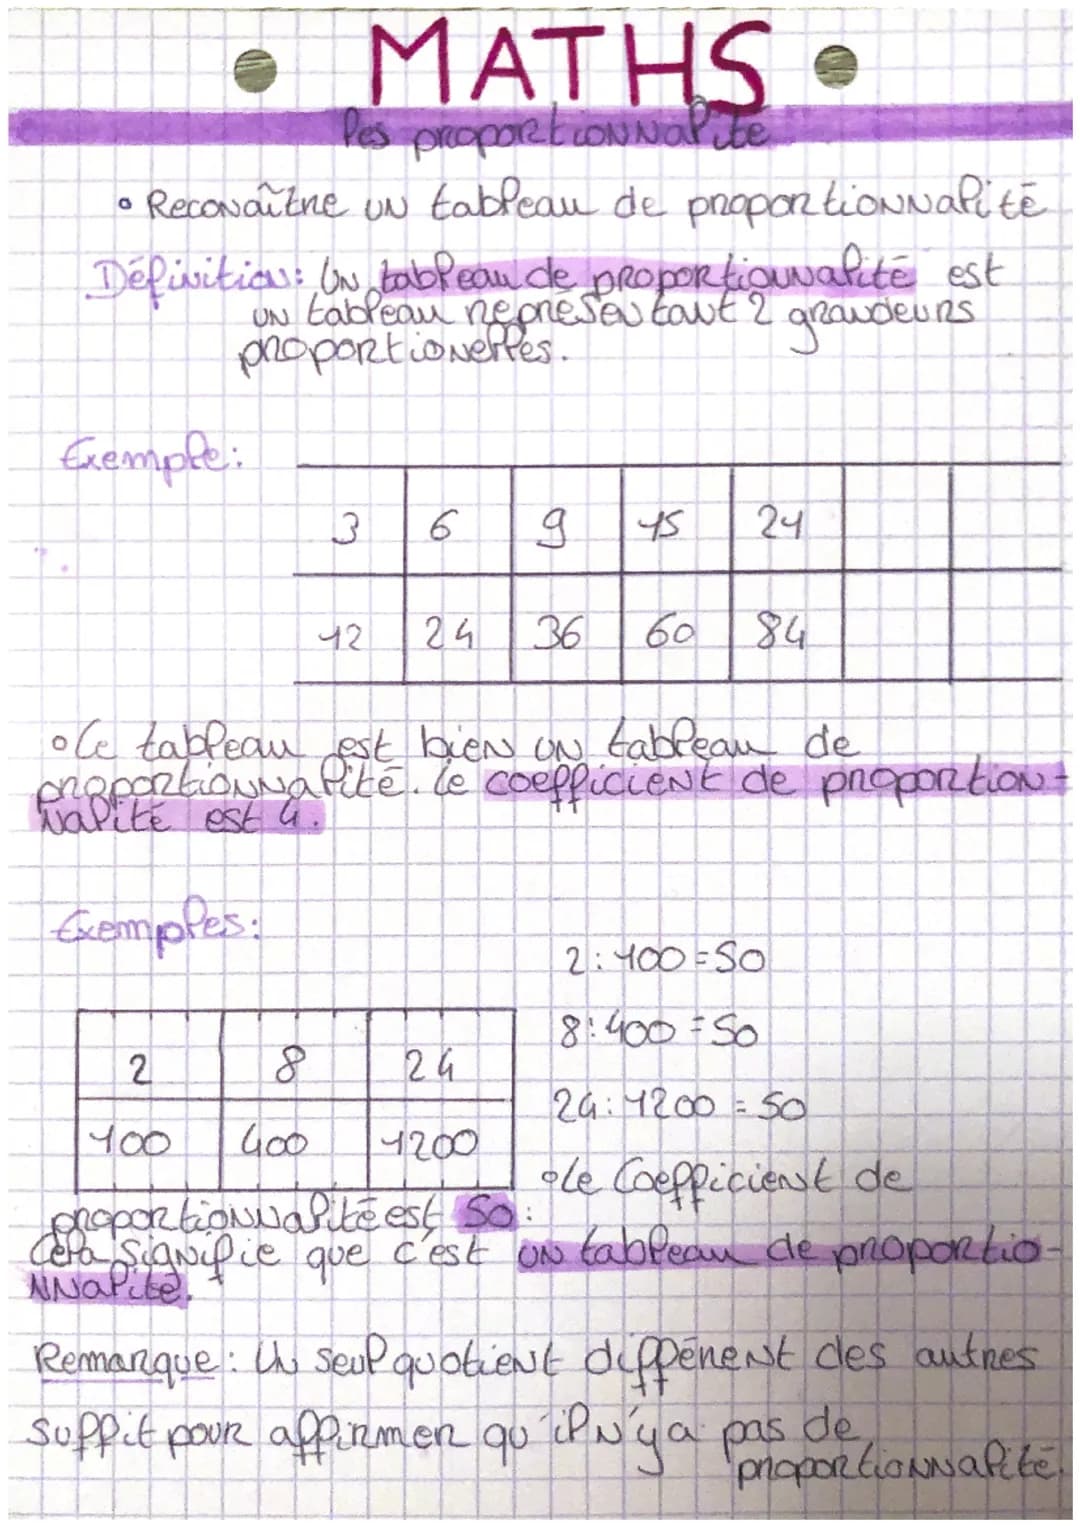 MATHS
les proportionnalité
• Reconaître un tableau de proportionnalité
Définition: Un tableau de proportionnalité est
un tableau représentant 2 grandeurs
proportionelles.
Exemple:
3 6 9 15 21
12 24 36 60 84
• Ce tableau est bien un tableau de
proportionnalité. Le coefficient de proportion-
nalité est 4.
Exemples:
2:100=50
8:400=50
2 8 24
24:1200=50
100 400 1200
• le Coefficient de
proportionnalité est 50:
Cela signifie que c'est un tableau de proportio-
nnalité.
Remarque: Un seul quotient différent des autres
suffit pour affirmer qu'il n'y a pas de
proportionnalité.